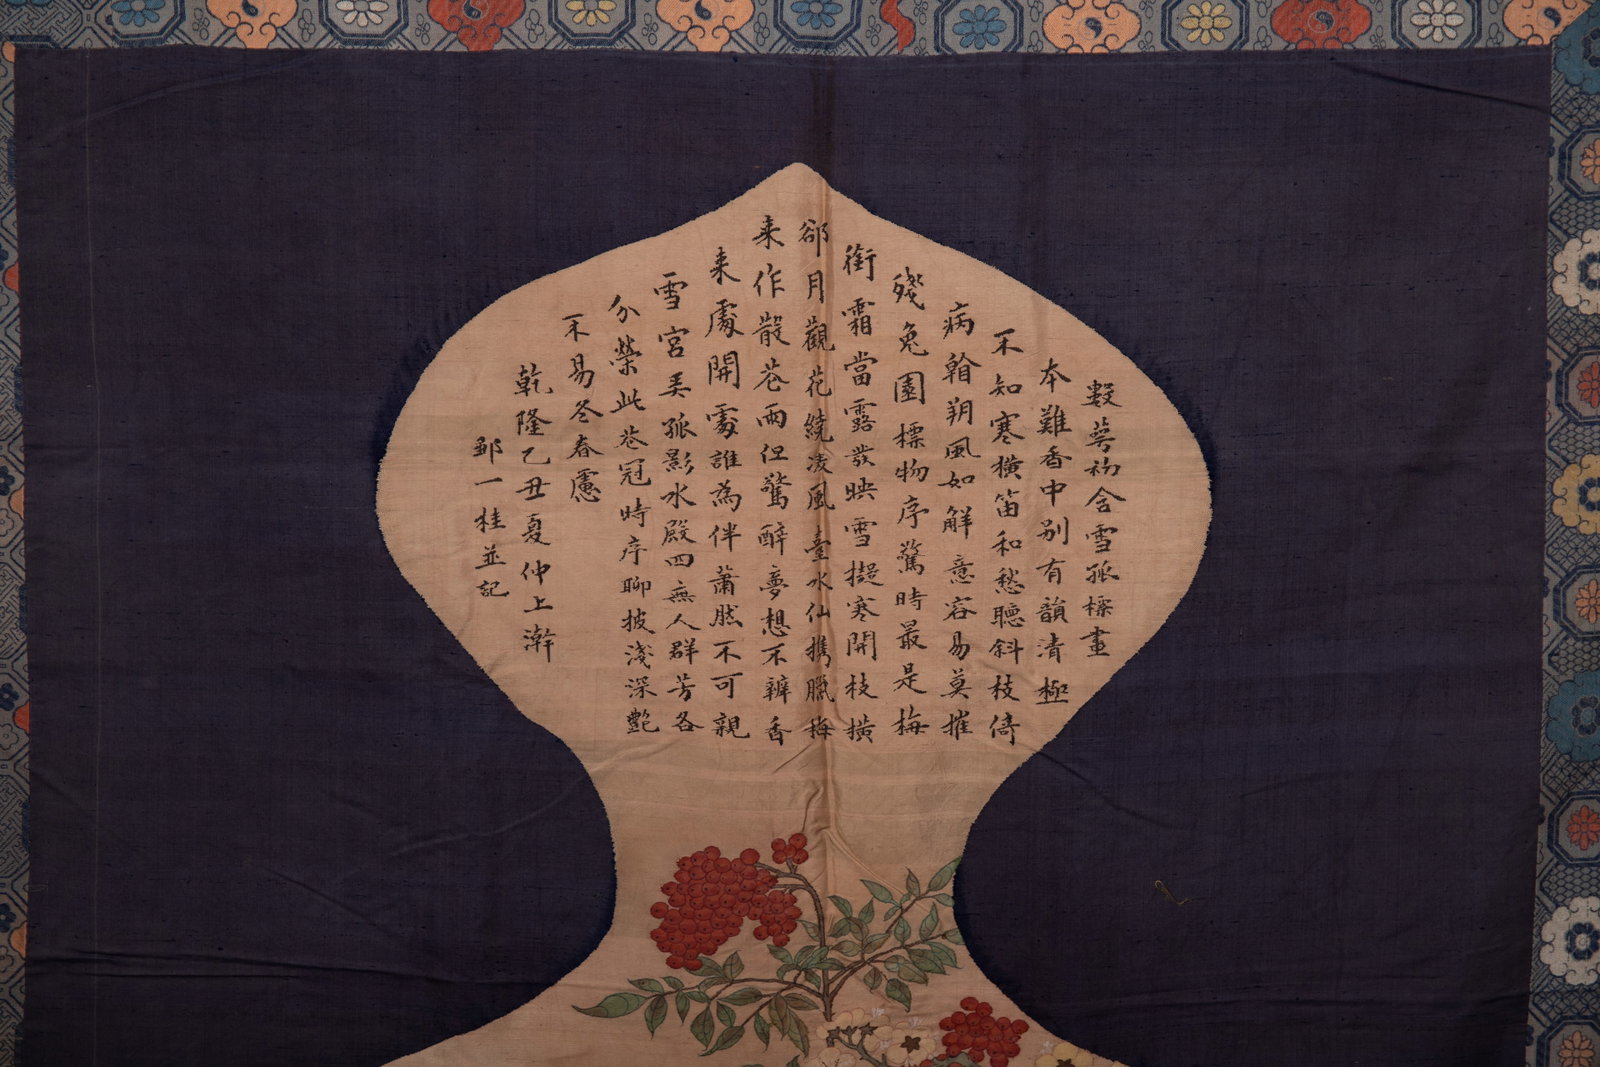 數萼初含雪孤標畫
本難香中别有韻清極
不知寒橫笛和愁聽斜枝倚
病翰朔風如解意容易莫摧
殘兔園標物序驚時最是梅
銜霜當露發映雪擬寒開枝橫
郤月觀花繞凌風臺水仙携臘梅
来作散花雨但驚醉夢想不辨香
来處開處誰為伴蕭然不可親
雪宮美孤影水殿四無人群芳各
分榮此花冠時序聊披淺深艷
不易冬春慮
乾隆乙丑夏仲上澣
鄒一桂並記